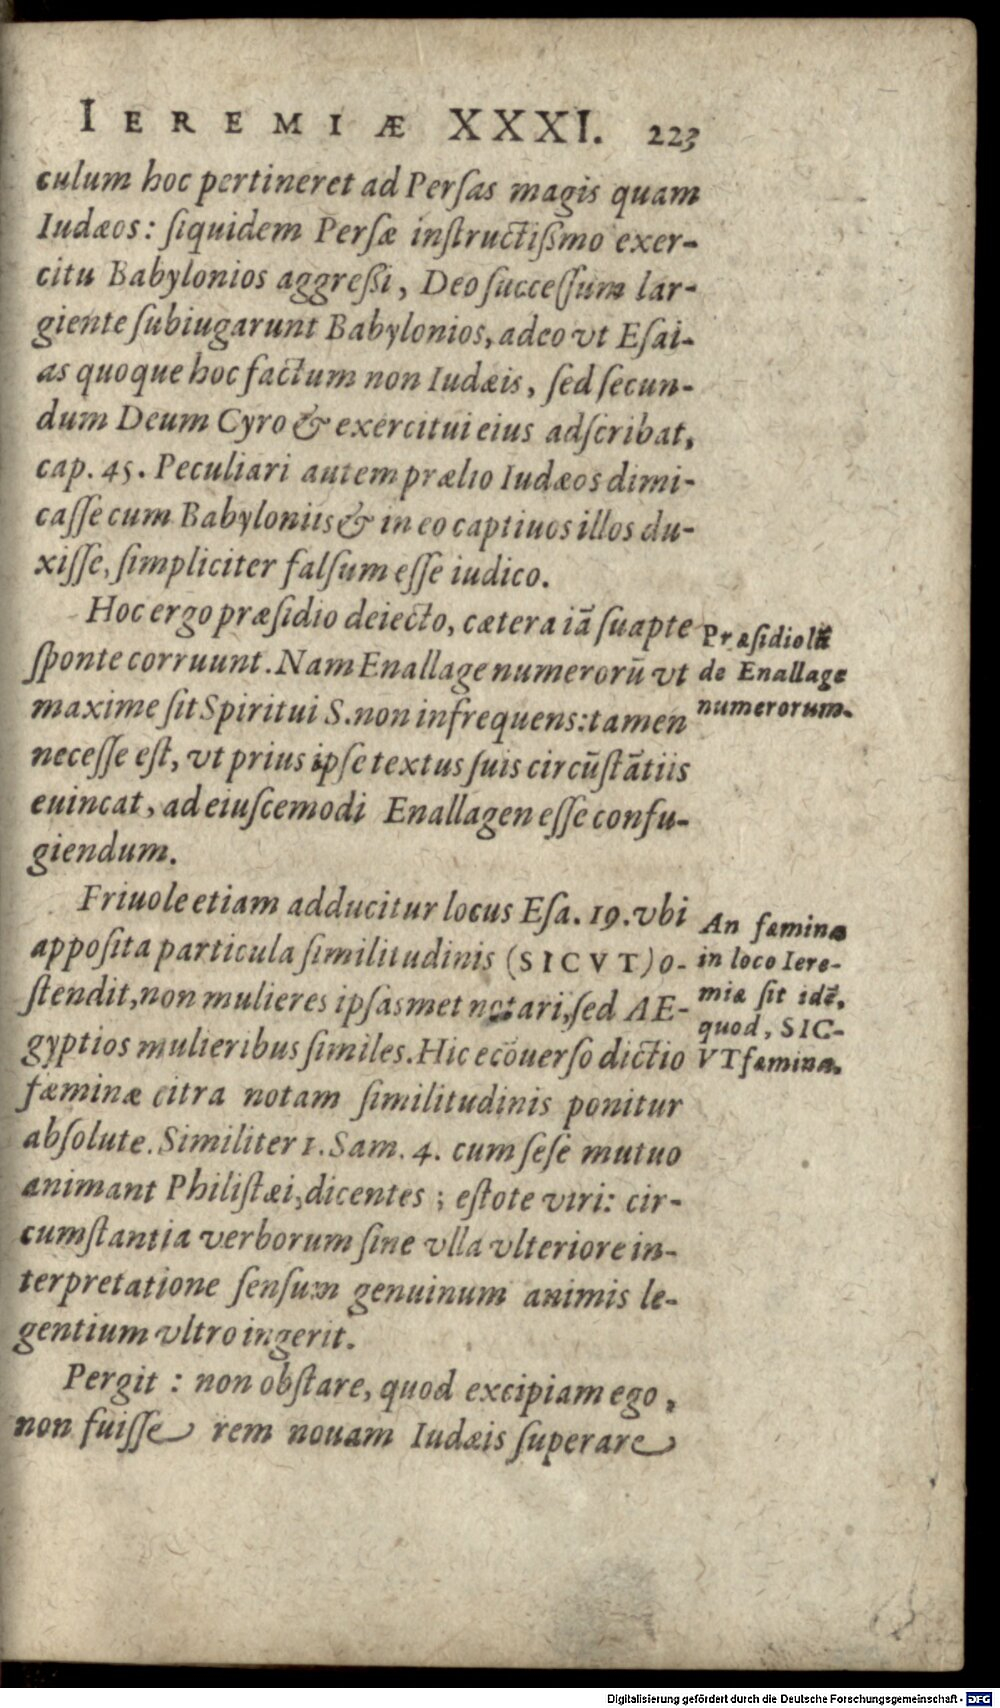 IEREMIÆ XXXI. 223
culum hoc pertineret ad Perſas magis quam
Iudæos: ſiquidem Perſæ inſtructißmo exer-
citu Babylonios aggreſſi, Deo ſucceſſum lar-
giente ſubiugarunt Babylonios, adeo vt Eſai-
as quoque hoc factum non Iudæis, ſed ſecun-
dum Deum Cyro & exercitui eius adſcribat,
cap. 45. Peculiari autem prælio Iudæos dimi-
caſſe cum Babyloniis & in eo captiuos illos du-
xiſſe, ſimpliciter falſum eſſe iudico.
Hoc ergo præſidio deiecto, cætera iã ſuapte
ſponte corruunt. Nam Enallage numerorũ vt
maxime ſit Spiritui S. non infrequens: tamen
neceſſe eſt, vt prius ipſe textus ſuis circũſtãtiis
euincat, ad eiuſcemodi Enallagen eſſe confu-
giendum.
Præſidiolũ
de Enallage
numerorum.
Friuole etiam adducitur locus Eſa. 19. vbi
appoſita particula ſimilitudinis (SICVT) o-
ſtendit, non mulieres ipſasmet notari, ſed AE-
gyptios mulieribus ſimiles. Hic ecõuerſo dictio
fæminæ citra notam ſimilitudinis ponitur
abſolute. Similiter 1. Sam. 4. cum ſeſe mutuo
animant Philiſtæi, dicentes ; eſtote viri: cir-
cumſtantia verborum ſine vlla vlteriore in-
terpretatione ſenſum genuinum animis le-
gentium vltro ingerit.
An fæmina
in loco Iere-
miæ ſit idẽ,
quod, SIC-
VT fæmina.
Pergit : non obſtare, quod excipiam ego,
non fuiſſe rem nouam Iudæis ſuperare
Digitalisierung gefördert durch die Deutsche Forschungsgemeinschaft - DFG